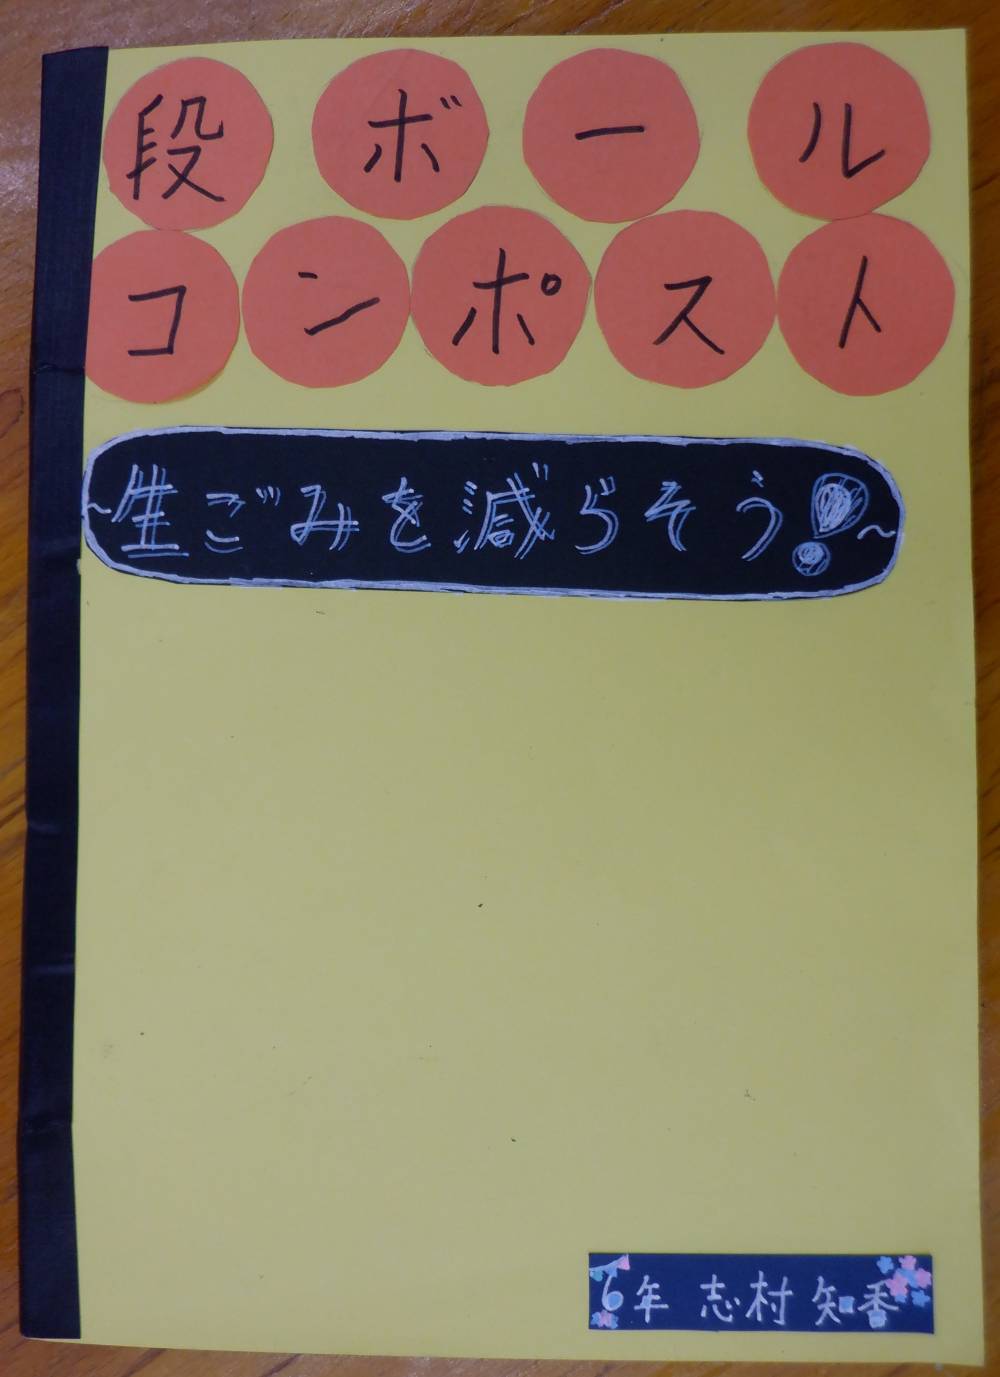 段ボール
コンポスト
~生ごみを減らそう!~
6年 志村 知香